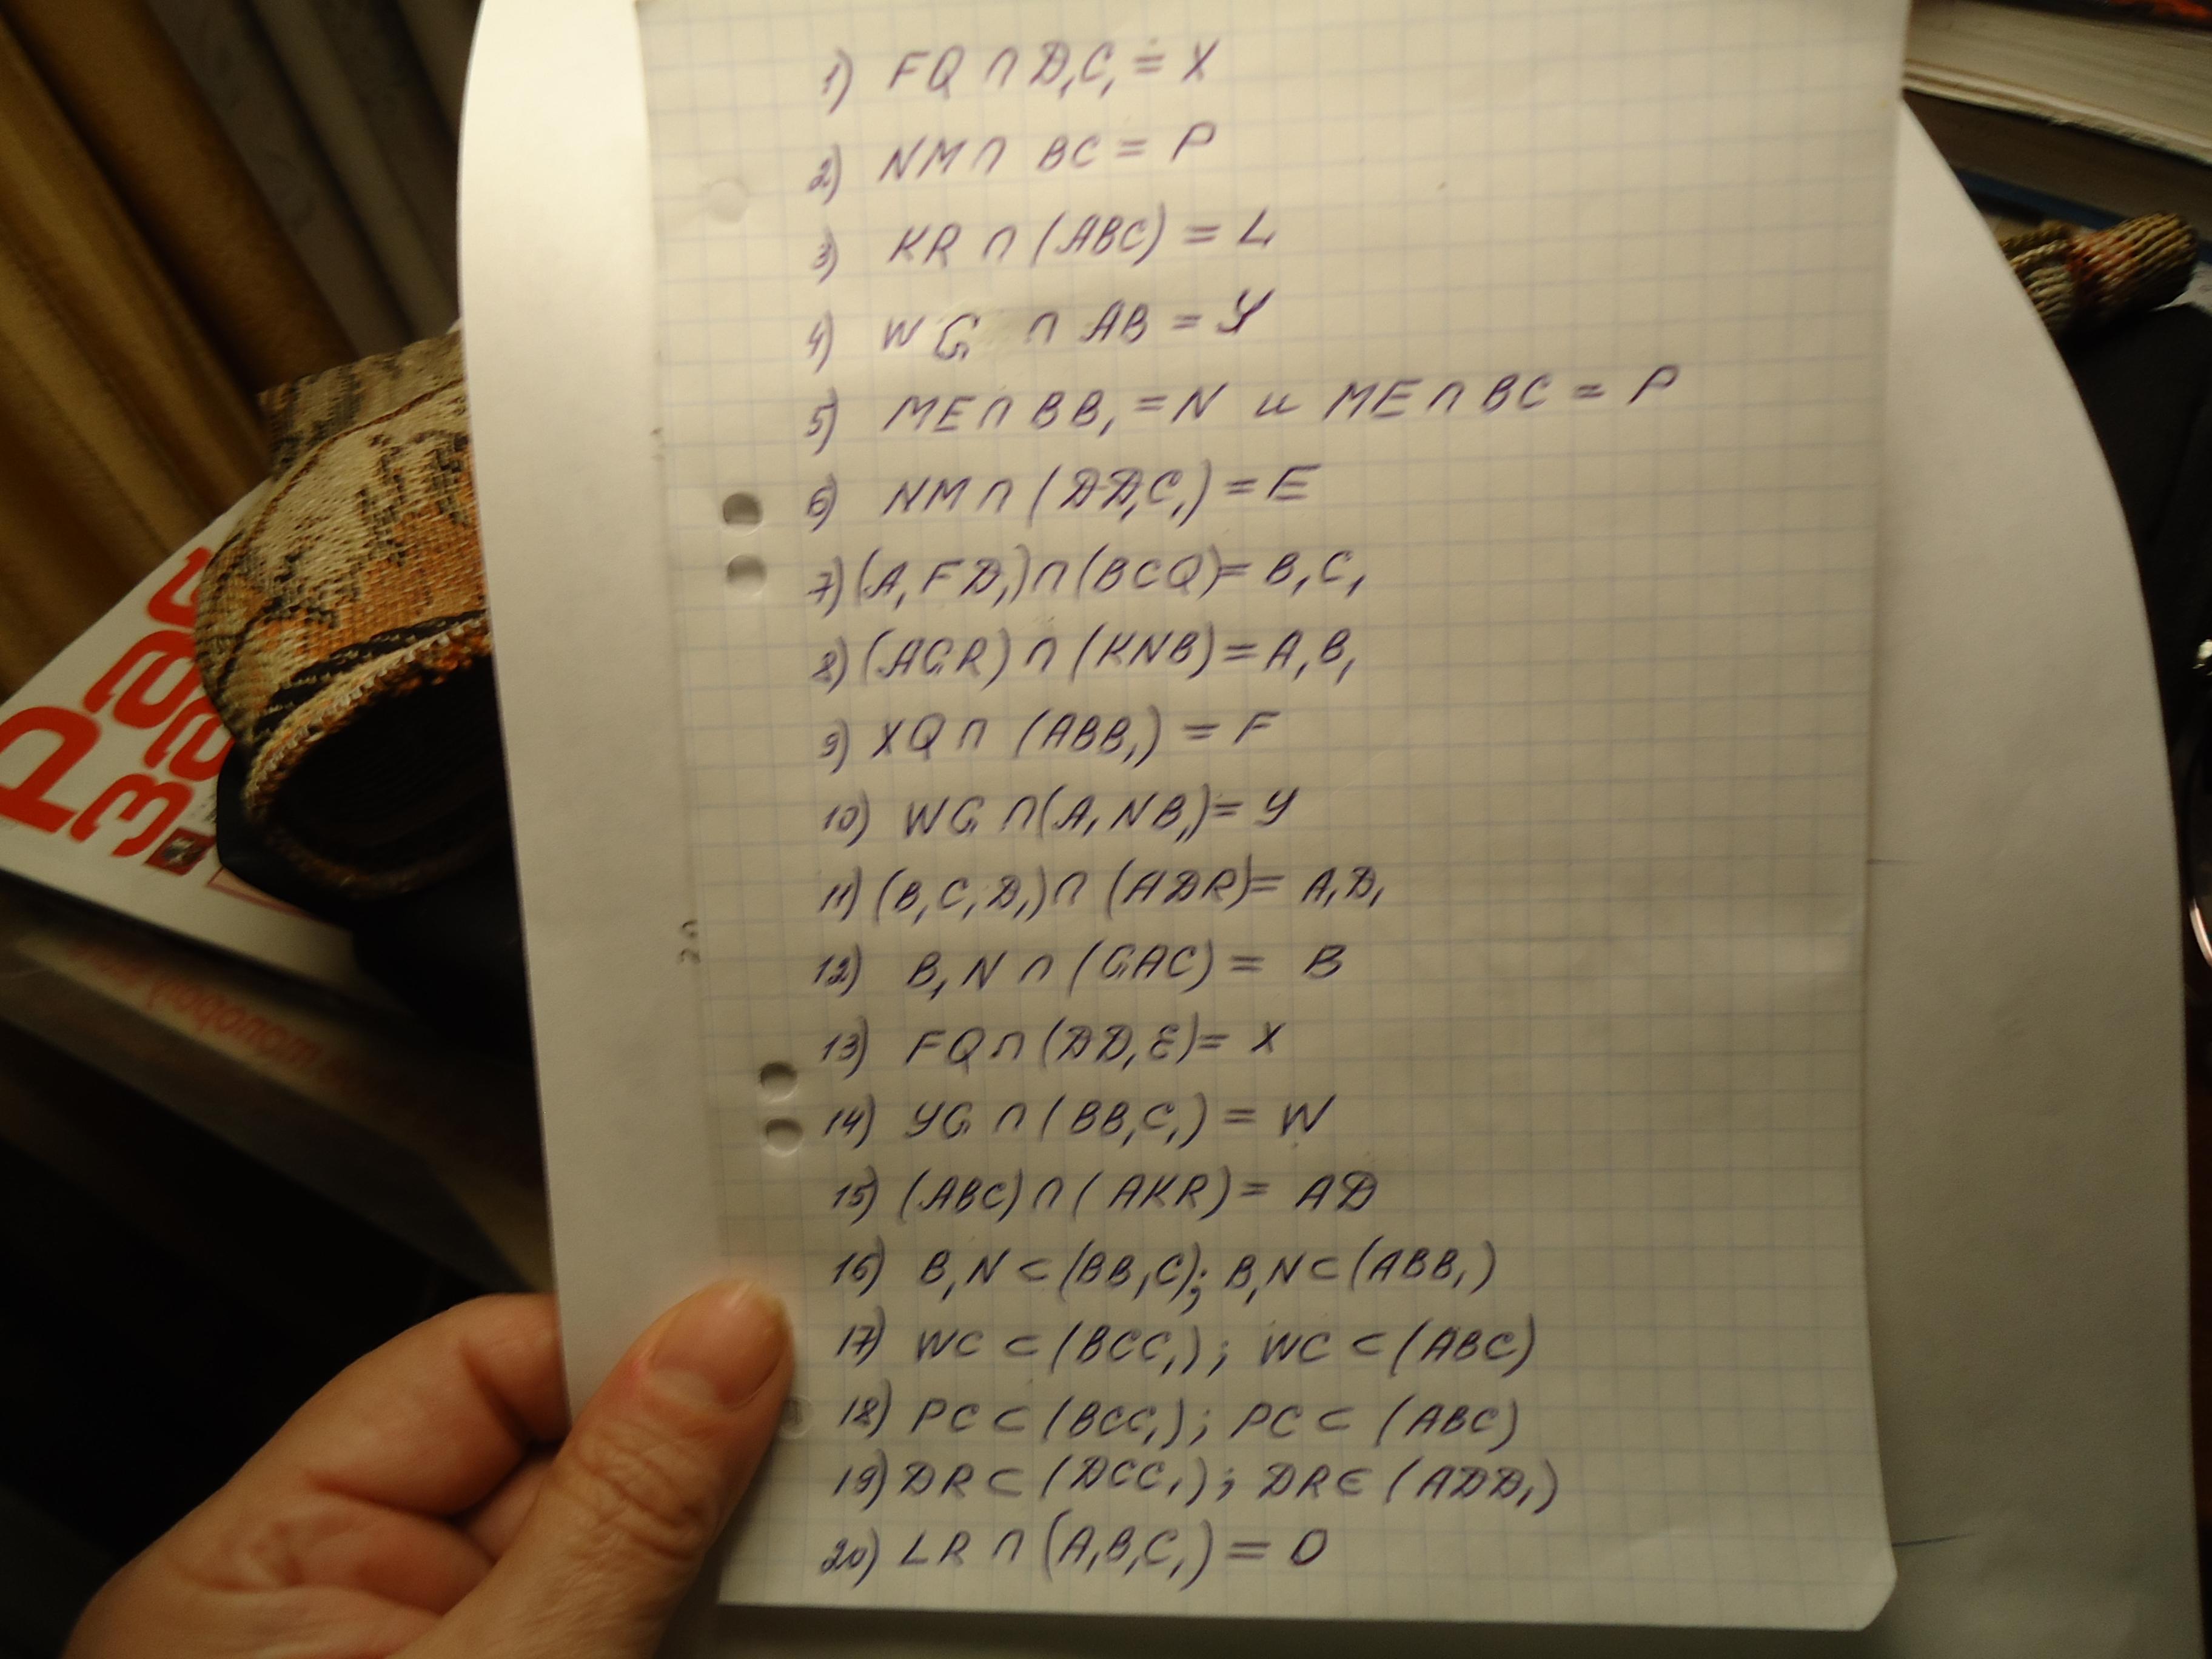 1) FQ ∩ D₁C₁ = X
2) NM ∩ BC = P
3) KR ∩ (ABC) = L
4) WG ∩ AB = Y
5) ME ∩ BB₁ = N и ME ∩ BC = P
6) NM ∩ (DD₁C₁) = E
7) (A₁FD₁) ∩ (BCQ) = B₁C₁
8) (AGR) ∩ (KNB) = A₁B₁
9) XQ ∩ (ABB₁) = F
10) WG ∩ (A₁NB₁) = Y
11) (B₁C₁D₁) ∩ (ADR) = A₁D₁
12) B₁N ∩ (GAC) = B
13) FQ ∩ (DD₁E) = X
14) YG ∩ (BB₁C₁) = W
15) (ABC) ∩ (AKR) = AD
16) B₁N ⊂ (BB₁C); B₁N ⊂ (ABB₁)
17) WC ⊂ (BCC₁); WC ⊂ (ABC)
18) PC ⊂ (BCC₁); PC ⊂ (ABC)
19) DR ⊂ (DCC₁); DR ∈ (ADD₁)
20) LR ∩ (A₁B₁C₁) = O